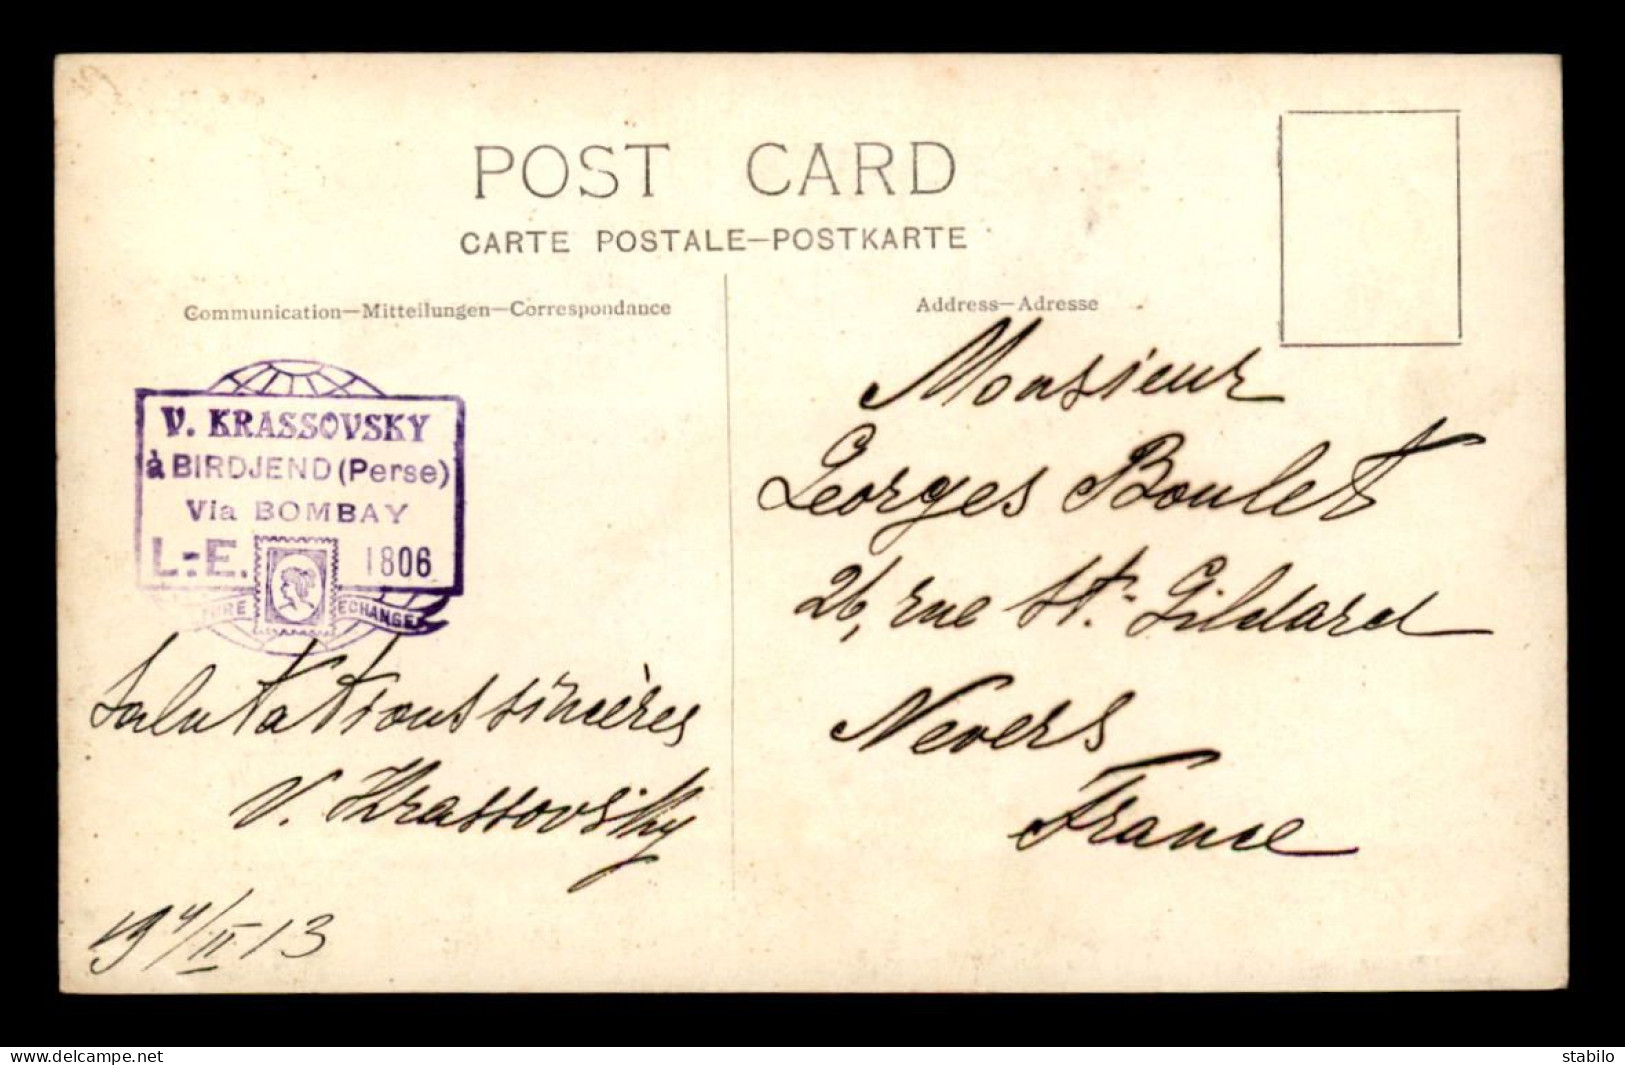 POST CARD
CARTE POSTALE—POSTKARTE
Communication—Mitteilungen—Correspondance
Address—Adresse
V. KRASSOVSKY
à BIRDJEND (Perse)
Via BOMBAY
L.=E. 1806
ECHANGE
Salutations sincères
V. Krassovsky
19 4/II 13
Monsieur
Georges Boulet
26, rue St. Gildard
Nevers
France
www.delcampe.net
stabilo